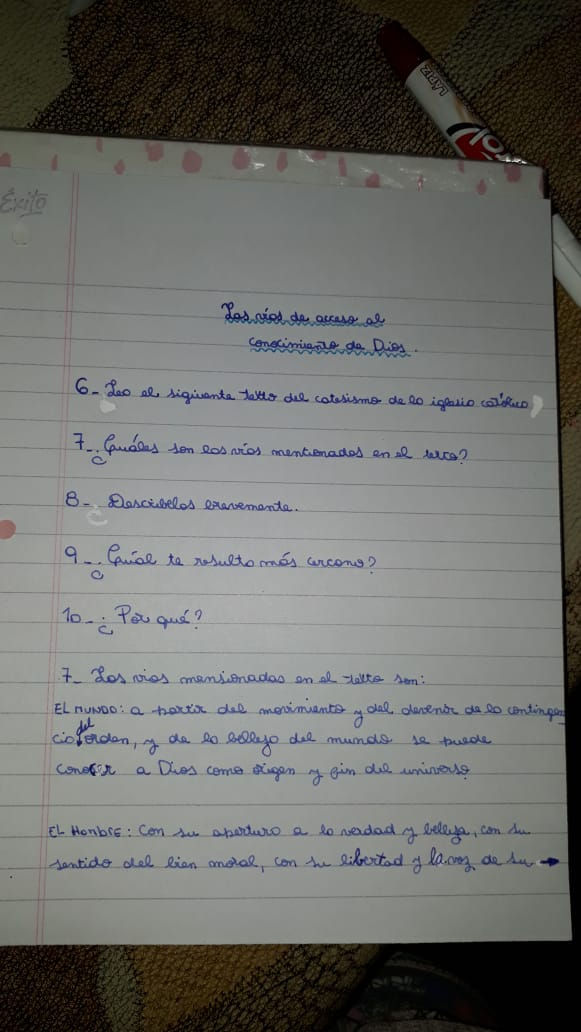 LÁPIZ
Éxito
Las vías de acceso al
conocimiento de Dios.
6- Leo el siguiente texto del catesismo de la iglesia católica
7-¿Cuáles son las vías mencionados en el texto?
8- Descríbelos brevemente.
9-¿Cuál te resulto más cercano?
10-¿Por qué?
7- Las vías mencionadas en el texto son:
EL MUNDO: a partir del movimiento y del devenir de la contingen
cia, del orden, y de la belleza del mundo se puede
conocer a Dios como origen y fin del universo
EL HOMBRE: Con su apertura a la verdad y belleza, con su
sentido del bien moral, con su libertad y la voz de su →